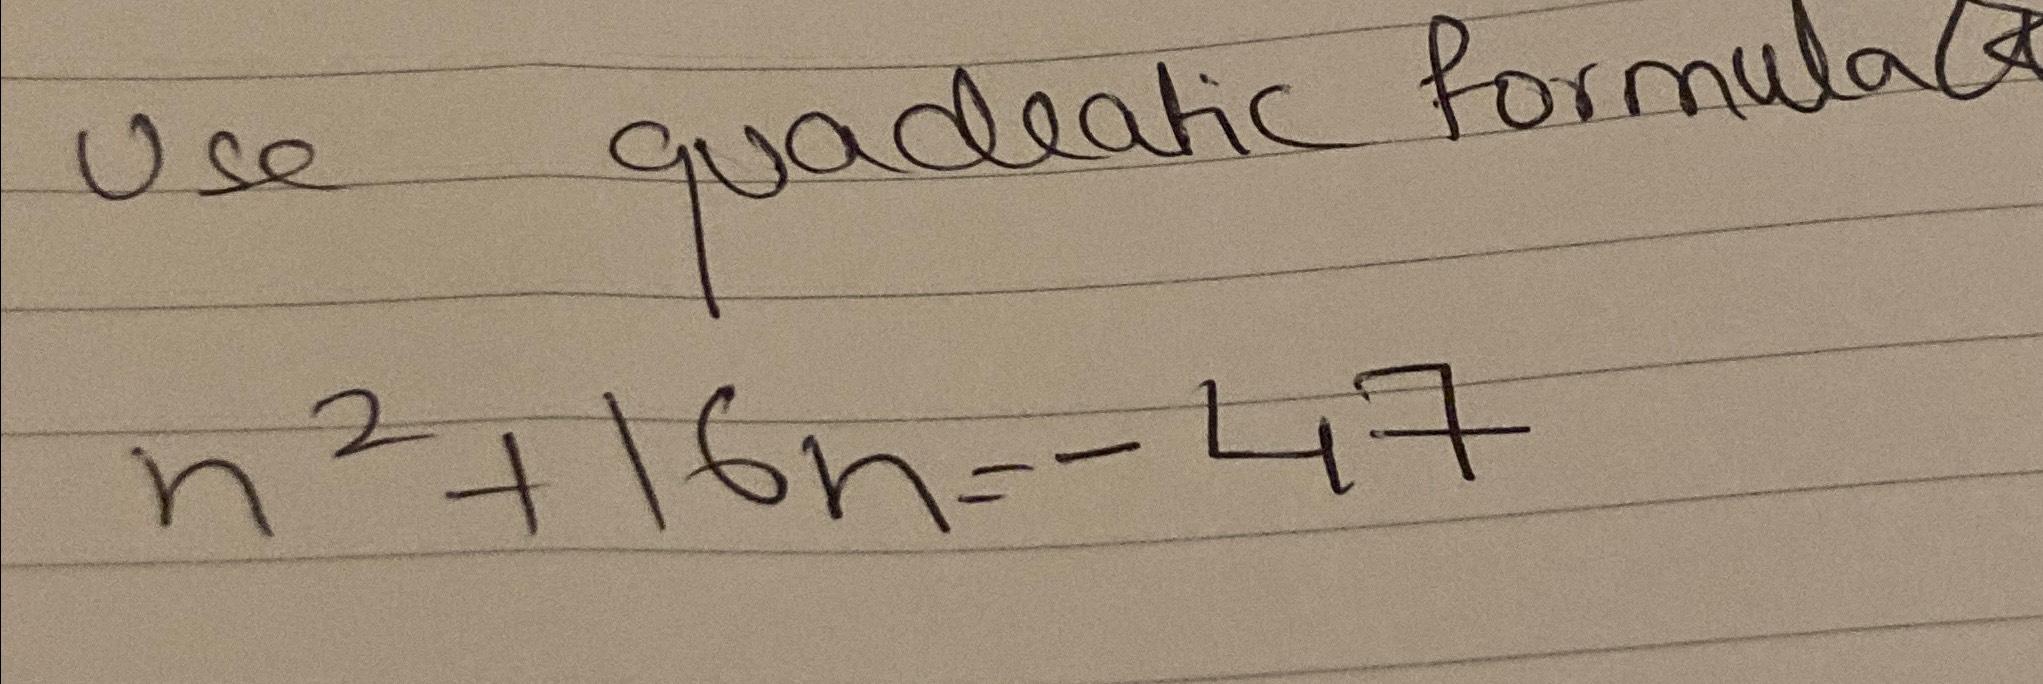 Use quadratic formula
n²+16n=-47